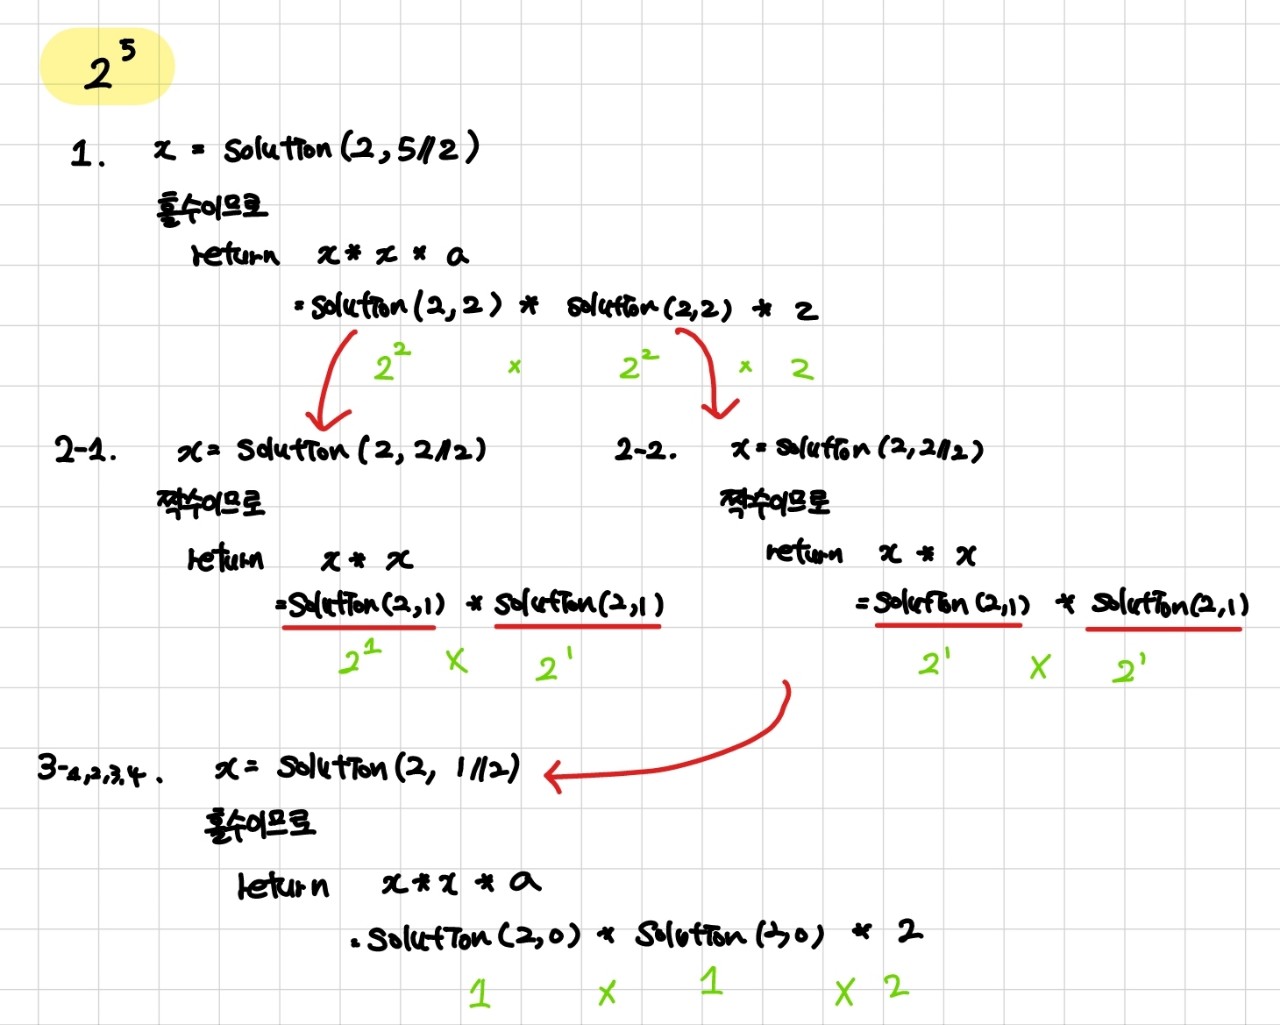 2^5
1. x = solution(2, 5//2)
홀수이므로
return x * x * a
= solution(2, 2) * solution(2,2) * 2
2^2 × 2^2 × 2
2-1. x = solution(2, 2//2)
짝수이므로
return x * x
= solution(2,1) * solution(2,1)
2^1 × 2^1
2-2. x = solution(2, 2//2)
짝수이므로
return x * x
= solution(2,1) * solution(2,1)
2^1 × 2^1
3-1,2,3,4. x = solution(2, 1//2)
홀수이므로
return x * x * a
= solution(2,0) * solution(2,0) * 2
1 × 1 × 2